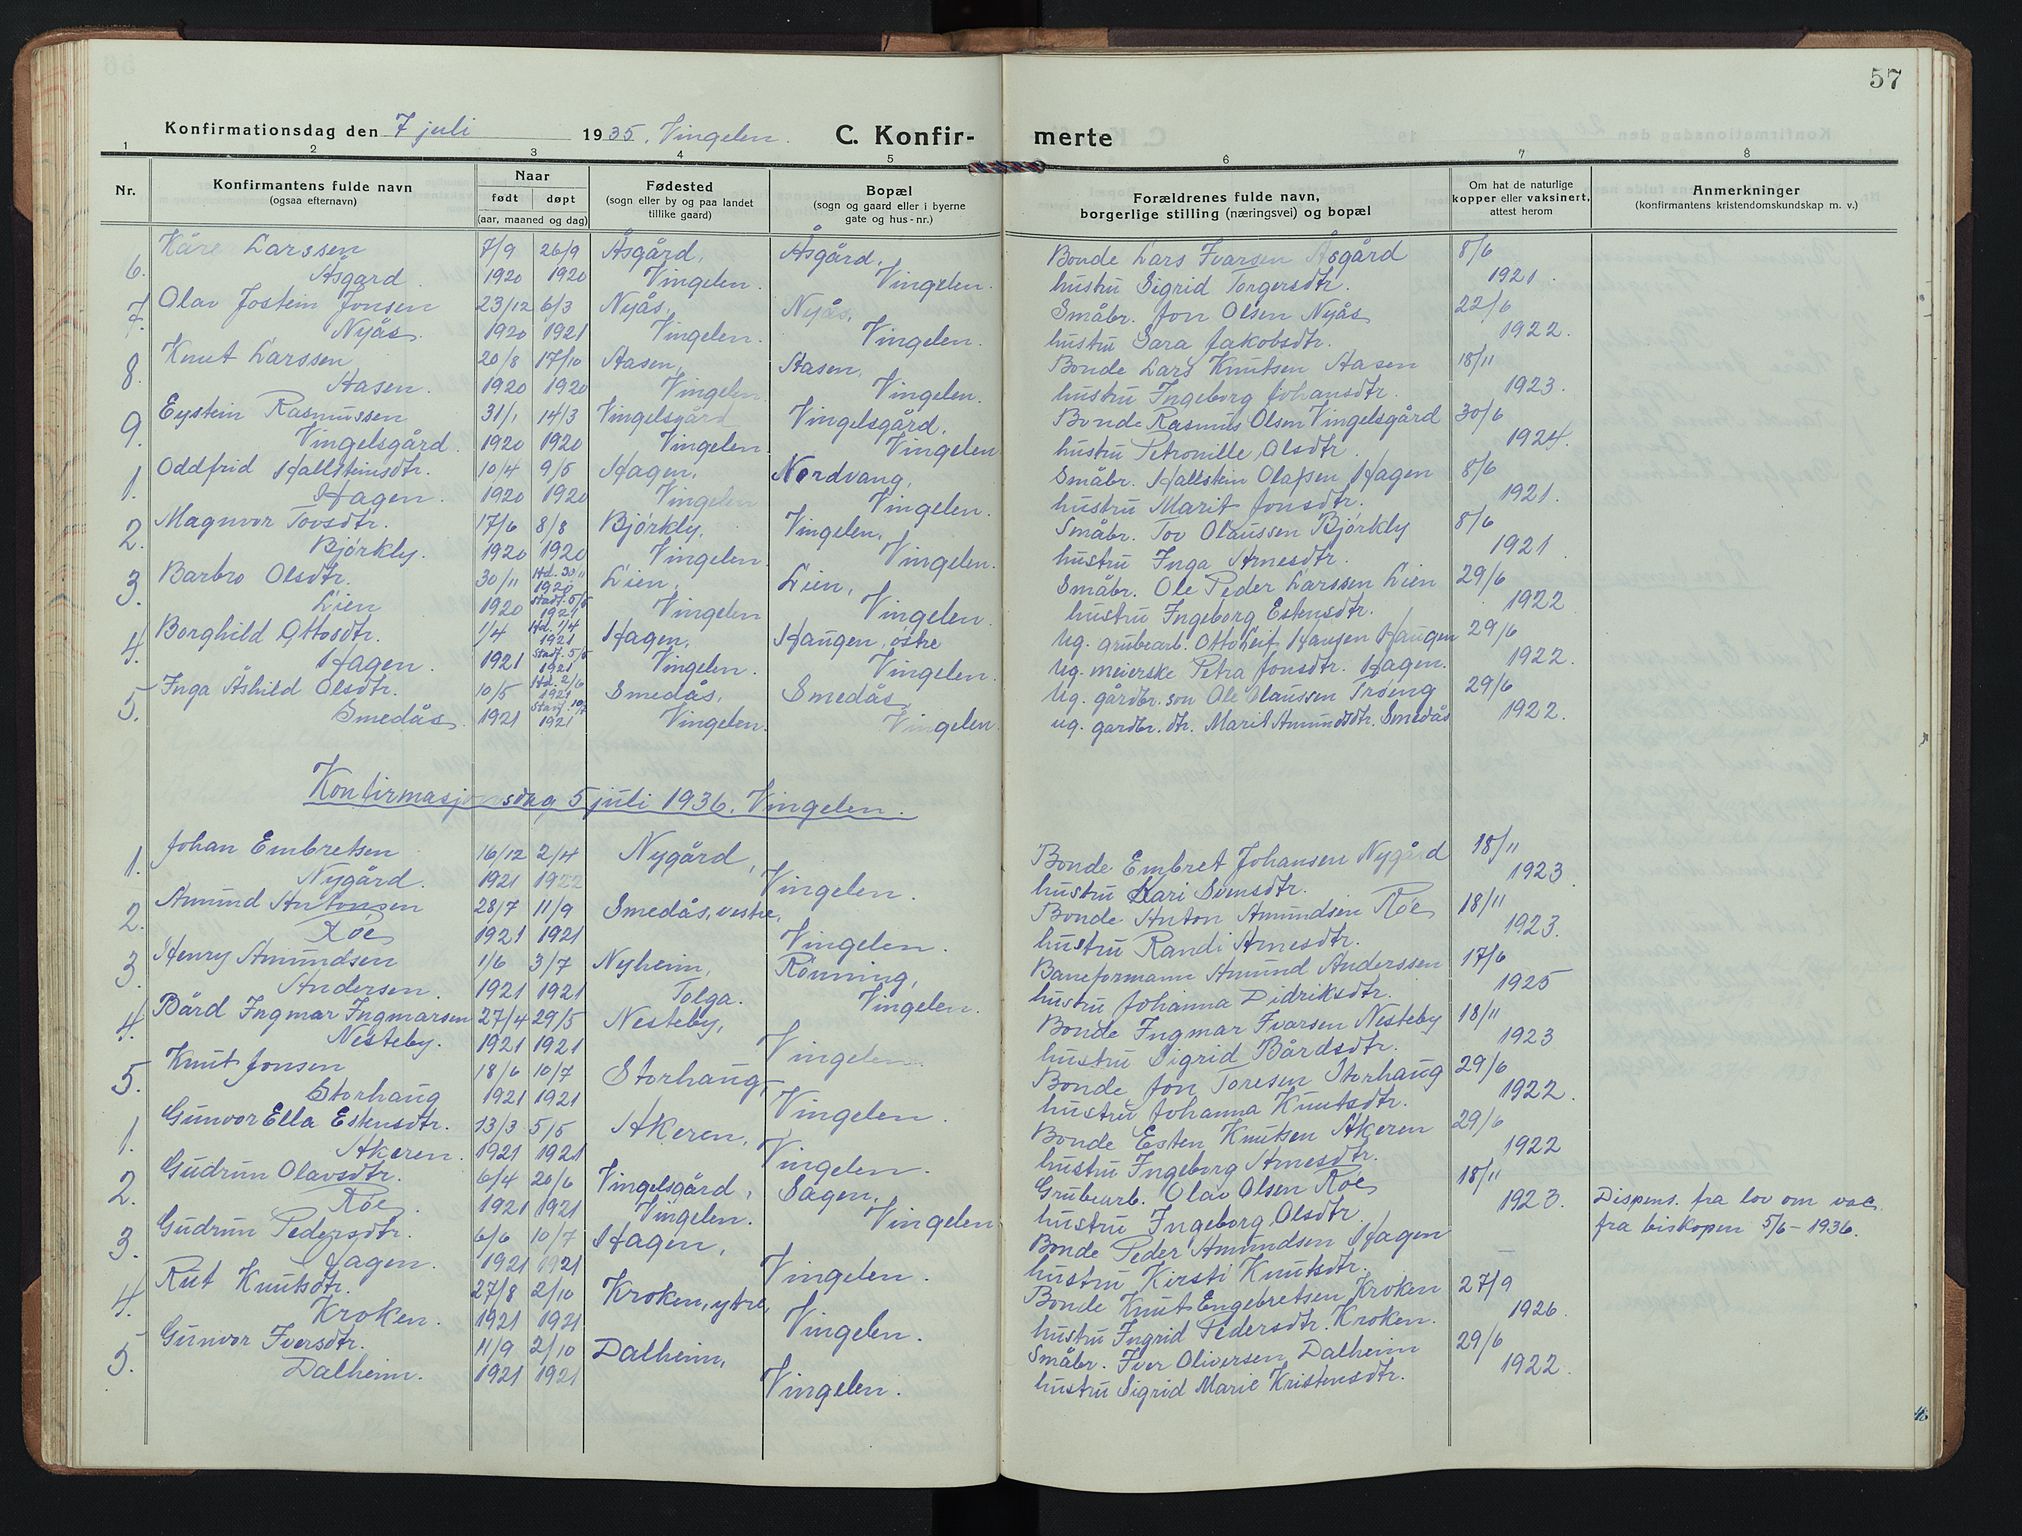 57
Konfirmationsdag den 7 juli 1935. Vingelen. C. Konfirmerte
1 2 3 4 5 6 7 8
Nr. Konfirmantens fulde navn (ogsaa efternavn) Naar født døpt (aar, maaned og dag) Fødested (sogn eller by og paa landet tillike gaard) Bopæl (sogn og gaard eller i byerne gate og hus-nr.) Forældrenes fulde navn, borgerlige stilling (næringsvei) og bopæl Om hat de naturlige kopper eller vaksinert, attest herom Anmerkninger (konfirmantens kristendomskundskap m. v.)
6. Kåre Larssen 7/9 26/9 Åsgård, Åsgård, Bonde Lars Ivarsen Åsgård 8/6
Åsgård. 1920 1920 Vingelen. Vingelen. hustru Sigrid Torgersdtr. 1921.
7. Olav Jostein Jonsen 23/12 6/3 Nyås, Nyås, Småbr. Jon Olsen Nyås 22/6
Nyås. 1920 1921 Vingelen. Vingelen. hustru Sara Jakobsdtr. 1922.
8. Knut Larssen 20/8 17/10 Aasen, Aasen, Bonde Lars Knutsen Aasen 18/11
Aasen. 1920 1920 Vingelen. Vingelen. hustru Ingeborg Johansdtr. 1923.
9. Eystein Rasmussen 31/1 14/3 Vingelsgård Vingelsgård. Bonde Rasmus Olsen Vingelsgård 30/6
Vingelsgård. 1920 1920 Vingelen Vingelen hustru Petronille Olsdtr. 1924.
1. Oddfrid Hallsteinsdtr. 10/4 9/5 Hagen, Nordvang, Småbr. Hallstein Olafsen Hagen 8/6
Hagen. 1920 1920 Vingelen Vingelen. hustru Marit Jonsdtr. 1921.
2. Magnvor Tovsdtr. 17/6 8/8 Bjørkly, Vingelen, Småbr. Tov Olaussen Bjørkly 8/6
Bjørkly. 1920 1920 Vingelen. Vingelen. hustru Inga Arnesdtr. 1921.
3. Barbro Olsdtr. 30/11 Hd. 30/11 1920 Lien, Lien, Småbr. Ole Peder Larssen Lien 29/6
Lien 1920 Stadf. 5/5 1921 Vingelen Vingelen. hustru Ingeborg Estensdtr. 1922
4. Borghild Ottosdtr. 1/4 Hd. 1/4 1921 Hagen, Haugen, østre Ug. grubearb. Otto Leif Hansen Haugen 29/6
Hagen. 1921 Stadf. 5/5 1921 Vingelen. Vingelen. Ug. meierske Petra Jonsdtr. Hagen. 1922.
5. Inga Åshild Olsdtr. 10/5 Hd. 2/6 1921 Smedås, Smedås Ug. gårdbr. søn Ole Olaussen Trøeng 29/6
Smedås. 1921 Stadf. 10/7 1921 Vingelen. Vingelen. ug. gardbr. dtr. Marit Amundsdtr. Smedås 1922.
Konfirmasjonsdag 5 juli 1936. Vingelen.
1. Johan Embretsen 16/12 2/4 Nygård, Bonde Embret Johansen Nygård 18/11
Nygård. 1921 1922 Vingelen. hustru Kari Svensdtr. 1923.
2. Amund Antonsen 28/7 11/9 Smedås, vestre, Bonde Anton Amundsen Røe 18/11
Røe 1921 1921 Vingelen. hustru Randi Arnesdtr. 1923.
3. Henry Amundsen 1/6 3/7 Nyheim, Rønning, Baneformann Amund Anderssen 17/6
Andersen. 1921 1921 Tolga. Vingelen. hustru Johanna Didriksdtr. 1925
4. Bård Ingmar Ingmarsen 27/4 29/5 Nesteby, Bonde Ingmar Ivarsen Nesteby 18/11
Nesteby. 1921 1921 Vingelen. hustru Sigrid Bårdsdtr. 1923
5. Knut Jonsen 18/6 10/7 Storhaug, Bonde Jon Toresen Storhaug 29/6
Storhaug 1921 1921 Vingelen hustru Johanna Knutsdtr. 1922.
1. Gunvor Ella Estensdtr. 13/3 5/5 Akeren, Bonde Esten Knutsen Akeren 29/6
Akeren. 1921 1921 Vingelen. hustru Ingeborg Arnesdtr. 1922
2. Gudrun Olavsdtr. 6/4 20/6 Vingelsgård, Sagen, Grubearb. Olav Olsen Røe 18/11
Røe. 1921 1921 Vingelen. Vingelen hustru Ingeborg Olsdtr. 1923. Dispens. fra lov om vac.
3. Gudrun Pedersdtr. 6/6 10/7 Hagen, Bonde Peder Amundsen Hagen – fra biskopen 5/6 - 1936.
Hagen. 1921 1921 Vingelen. hustru Kirsti Knutsdtr.
4. Rut Knutsdtr. 27/8 2/10 Kroken, ytre, Bonde Knut Engebretsen Kroken 27/9
Kroken. 1921 1921 Vingelen. hustru Ingrid Pedersdtr. Kroken. 1926.
5. Gunvor Iversdtr. 11/9 2/10 Dalheim, Småbr. Iver Oliversen Dalheim 29/6
Dalheim. 1921 1921 Vingelen. hustru Sigrid Marie Kristensdtr. 1922.